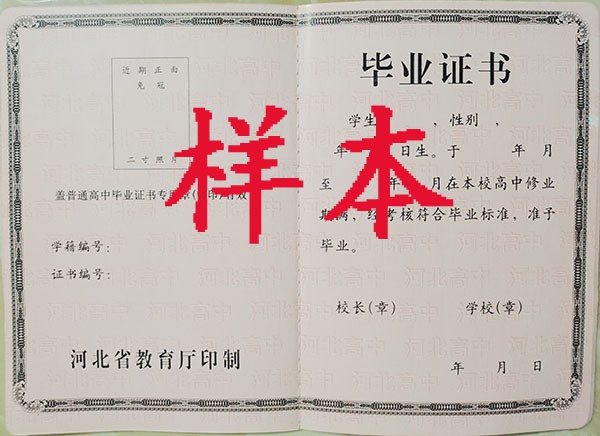 近期正面
免冠
二寸照片
盖普通高中毕业证书专用章(钢印)有效
学籍编号:
证书编号:
河北省教育厅印制
毕业证书
学生 , 性别 ,
年 日生。于 年 月
至 年 月在本校高中修业
期满, 经考核符合毕业标准, 准予
毕业。
校长(章) 学校(章)
年 月 日
样本